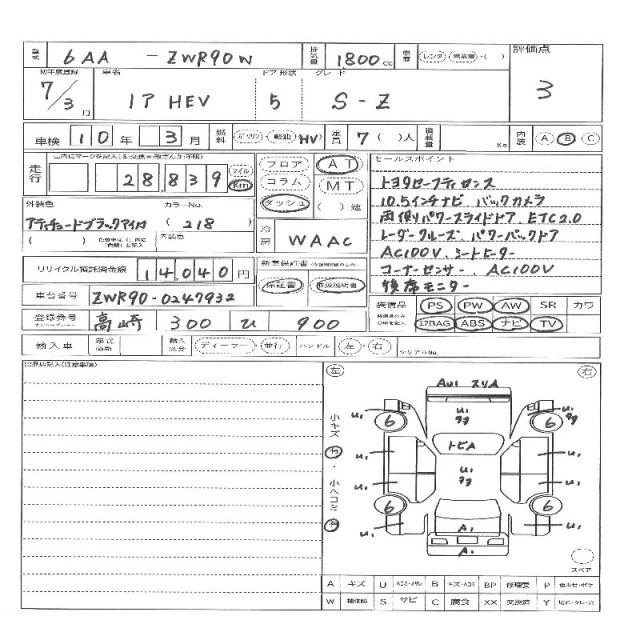 型式 6AA - ZWR90W 排気量 1800cc 車歴 レンタ・( ) 評価点
初年度登録 車名 ドア形状 グレード
7/3月 ノア HEV 5 S-Z 3
車検 10年 3月 燃料 ガソリン・軽油・HV 定員 7( )人 積載量 Kg 内装 A B C
走行 28,839 マイル Km フロア AT セールスポイント
コラム MT トヨタセーフティセンス
外装色 カラーNo. ダッシュ ( )速 10.5インチナビ、バックカメラ
アティチュードブラックマイカ (218) 両側パワースライドドア、ETC2.0
( ) 内装色 冷房 WAAC レーダークルーズ、パワーバックドア
AC100V、シートヒーター
リサイクル預託済金額 14,040円 新車保証書 コーナーセンサー、AC100V
保証書 取扱説明書 後席モニター
車台番号 ZWR90-0247932 装備品 PS PW AW SR カワ
登録番号 高崎 300 い 900 エアBAG ABS ナビ TV
輸入車 年式 輸入区分 ディーラー・並行 ハンドル 左・右 シリアルNo.
出品店記入(注意事項)
左 右
小キズ 有・小ヘコミ 有
AU1 スリA
U1 U1 U1
6 6
トビA
U1 U1 U1
U1 U1
6 6
U1 A1 U1
A1
スペア
A キズ U B BP 修理要 P 色あせ・ボケ
W 補修跡 S サビ C 腐食 XX 交換済 Y 切れ・ワレ・穴